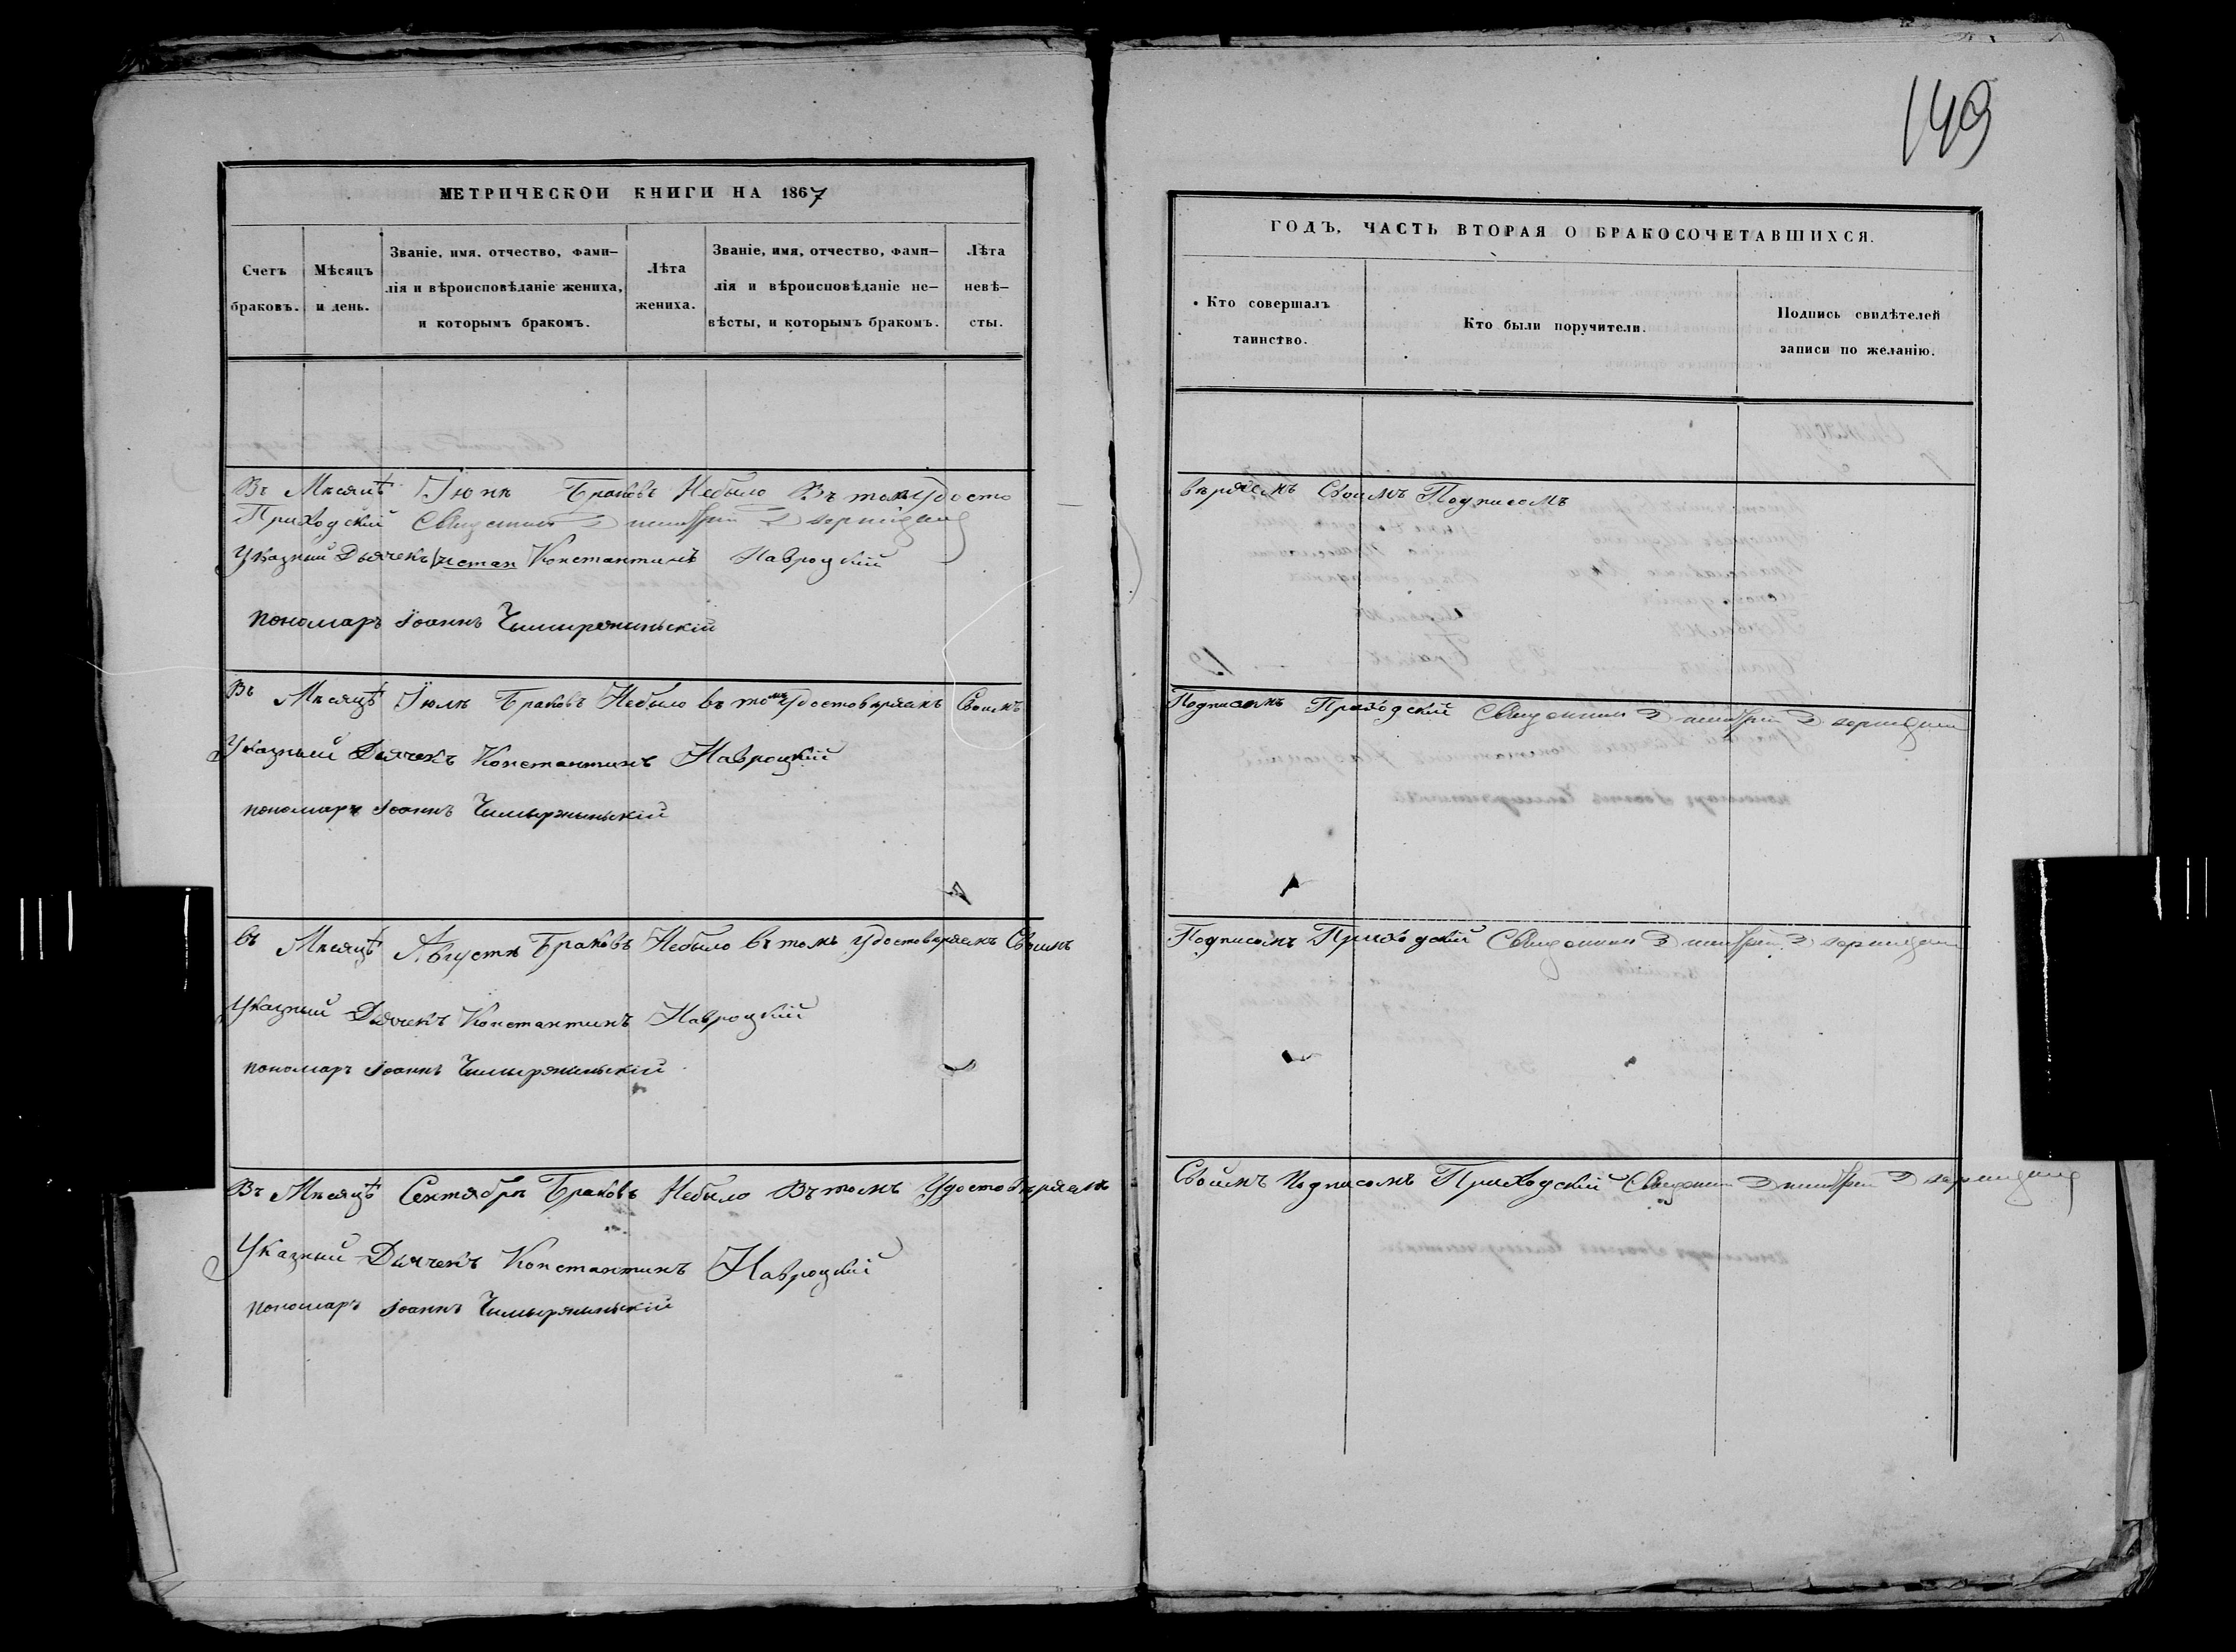 149
МЕТРИЧЕСКОЙ КНИГИ НА 1867
Счетъ браковъ.
Мѣсяцъ и день.
Званіе, имя, отчество, фами-
лія и вѣроисповѣданіе жениха,
и которымъ бракомъ.
Лѣта жениха.
Званіе, имя, отчество, фами-
лія и вѣроисповѣданіе не-
вѣсты, и которымъ бракомъ.
Лѣта
невѣ-
сты.
Въ Мѣсяцѣ Іюнѣ Браковъ Небыло Въ томъ Удосто
Приходскій Священник Дмитрій
Указный Дьячекъ Константинъ Навроцкій
пономаръ Іоаннъ
Въ Мѣсяцѣ Іюлѣ Браковъ Небыло въ томъ Удостовѣряемъ Своимъ
Указный Дьячекъ Константинъ Навроцкій
пономаръ Іоаннъ
въ Мѣсяцѣ Августѣ Браковъ Небыло въ томъ Удостовѣряемъ Своимъ
Указный Дьячекъ Константинъ Навроцкій
пономаръ Іоаннъ
Въ Мѣсяцѣ Сентябрѣ Браковъ Небыло Въ томъ Удостовѣряемъ
Указный Дьячекъ Константинъ Навроцкій
пономаръ Іоаннъ
ГОДЪ, ЧАСТЬ ВТОРАЯ О БРАКОСОЧЕТАВШИХСЯ.
Кто совершалъ
таинство.
Кто были поручители.
Подпись свидѣтелей
записи по желанію.
вѣряемъ Своимъ Подписомъ
Подписомъ Приходскій Священник Дмитрій
Подписомъ Приходскій Священник Дмитрій
Своимъ Подписомъ Приходскій Священник Дмитрій